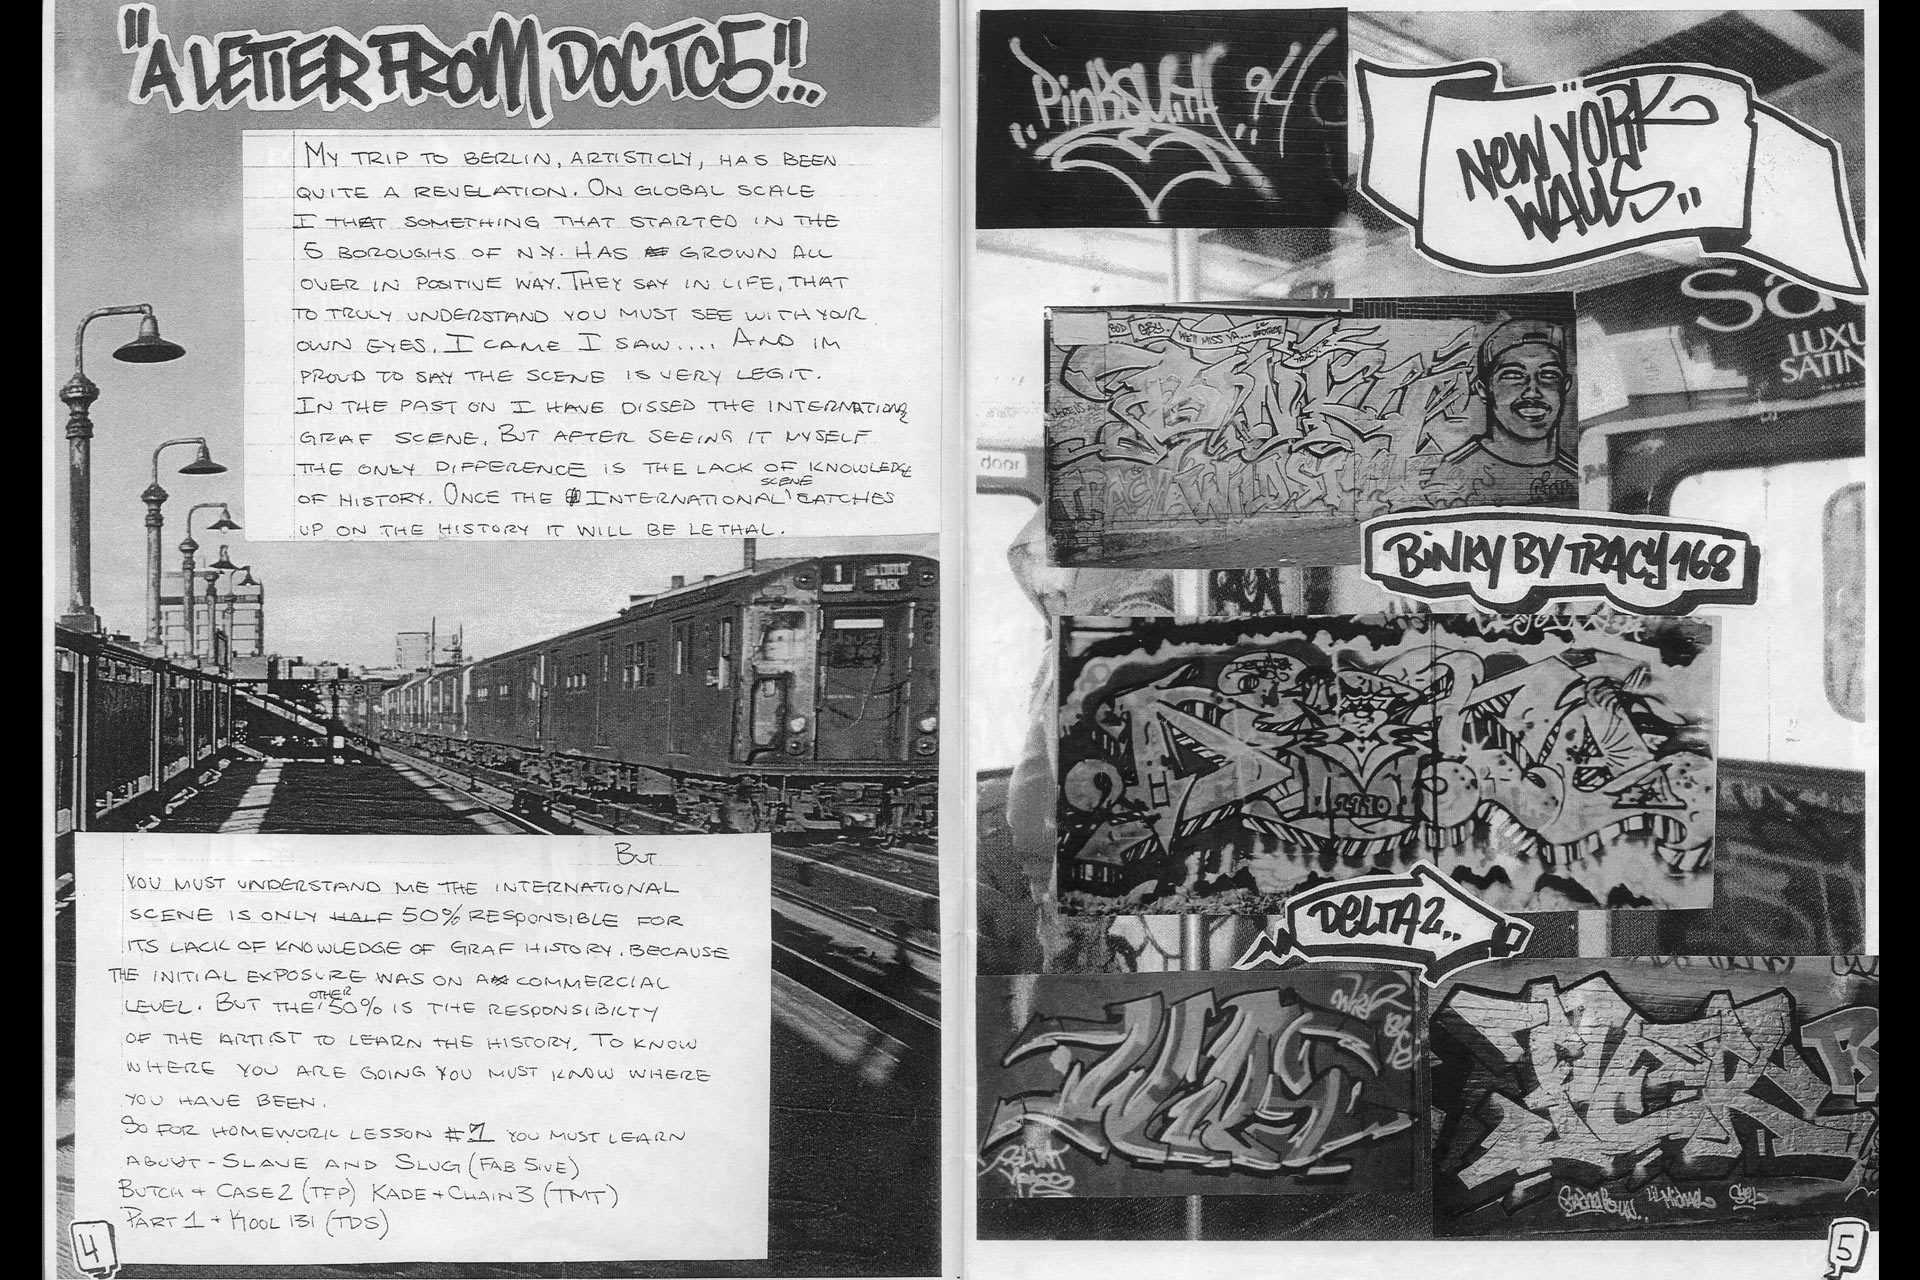 "A LETTER FROM DOC TC5"...
MY TRIP TO BERLIN, ARTISTICLY, HAS BEEN
QUITE A REVELATION. ON GLOBAL SCALE
I THAT SOMETHING THAT STARTED IN THE
5 BOROUGHS OF N.Y. HAS GROWN ALL
OVER IN POSITIVE WAY. THEY SAY IN LIFE, THAT
TO TRULY UNDERSTAND YOU MUST SEE WITH YOUR
OWN EYES. I CAME I SAW.... AND IM
PROUD TO SAY THE SCENE IS VERY LEGIT.
IN THE PAST ON I HAVE DISSED THE INTERNATIONAL
GRAF SCENE. BUT AFTER SEEING IT MYSELF
THE ONLY DIFFERENCE IS THE LACK OF KNOWLEDGE
OF HISTORY. ONCE THE INTERNATIONAL SCENE CATCHES
UP ON THE HISTORY IT WILL BE LETHAL.
1
PARK
BUT
YOU MUST UNDERSTAND ME THE INTERNATIONAL
SCENE IS ONLY HALF 50% RESPONSIBLE FOR
ITS LACK OF KNOWLEDGE OF GRAF HISTORY. BECAUSE
THE INITIAL EXPOSURE WAS ON A COMMERCIAL
LEVEL. BUT THE OTHER 50% IS THE RESPONSIBILTY
OF THE ARTIST TO LEARN THE HISTORY. TO KNOW
WHERE YOU ARE GOING YOU MUST KNOW WHERE
YOU HAVE BEEN.
SO FOR HOMEWORK LESSON #1 YOU MUST LEARN
ABOUT - SLAVE AND SLUG (FAB 5IVE)
BUTCH + CASE 2 (TFP) KADE + CHAIN 3 (TMT)
PART 1 + KOOL 131 (TDS)
4
94
"NEW YORK
WALLS"..
Sa
LUXU
SATIN
WE'LL MISS YA...
BINKY
BINKY BY TRACY 168
DELTA 2..
5